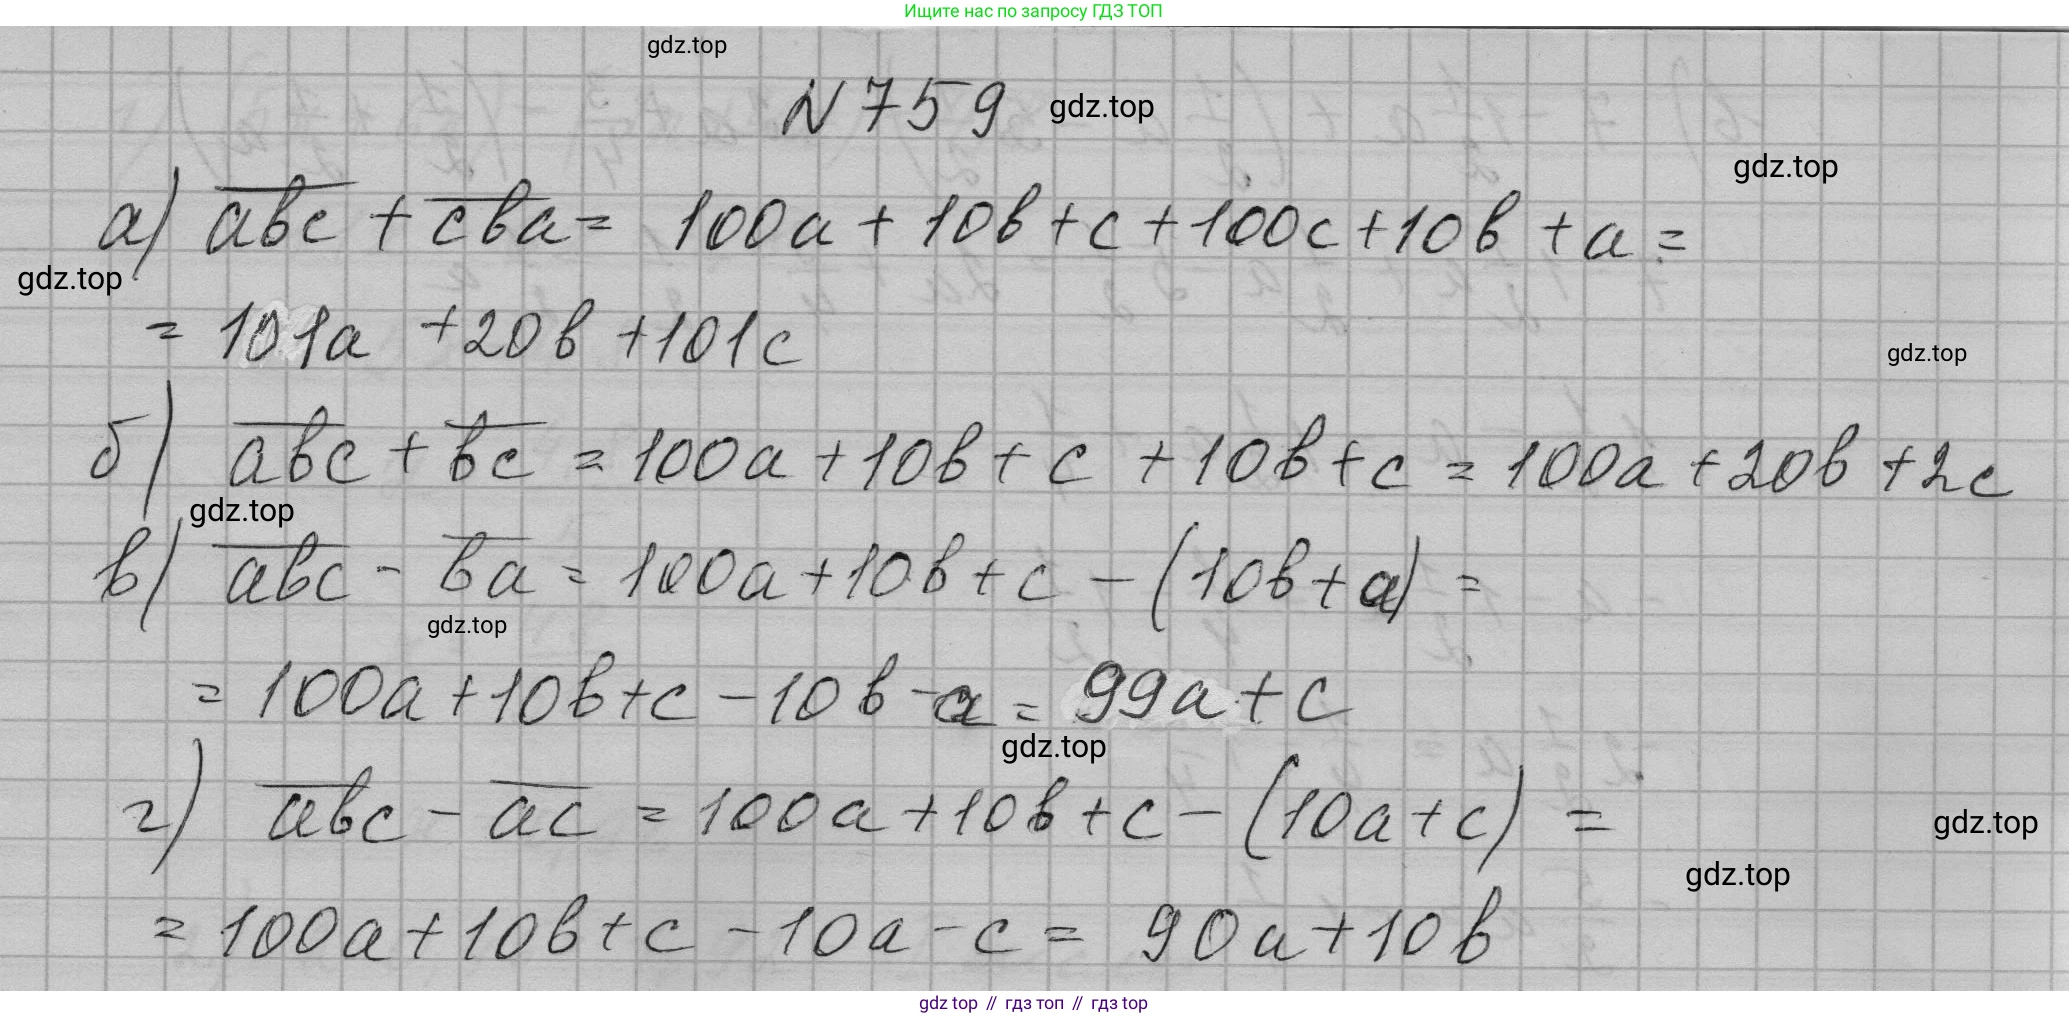 Ищите нас по запросу ГДЗ ТОП
gdz.top
N 759 gdz.top
gdz.top
а) a̅b̅c̅ + c̅b̅a̅ = 100a + 10b + c + 100c + 10b + a =
gdz.top
= 101a + 20b + 101c
gdz.top
б) a̅b̅c̅ + b̅c̅ = 100a + 10b + c + 10b + c = 100a + 20b + 2c
gdz.top
в) a̅b̅c̅ - b̅a̅ = 100a + 10b + c - (10b + a) =
gdz.top
= 100a + 10b + c - 10b - a = 99a + c
gdz.top
г) a̅b̅c̅ - a̅c̅ = 100a + 10b + c - (10a + c) =
gdz.top
gdz.top
= 100a + 10b + c - 10a - c = 90a + 10b
gdz top // гдз топ // гдз top